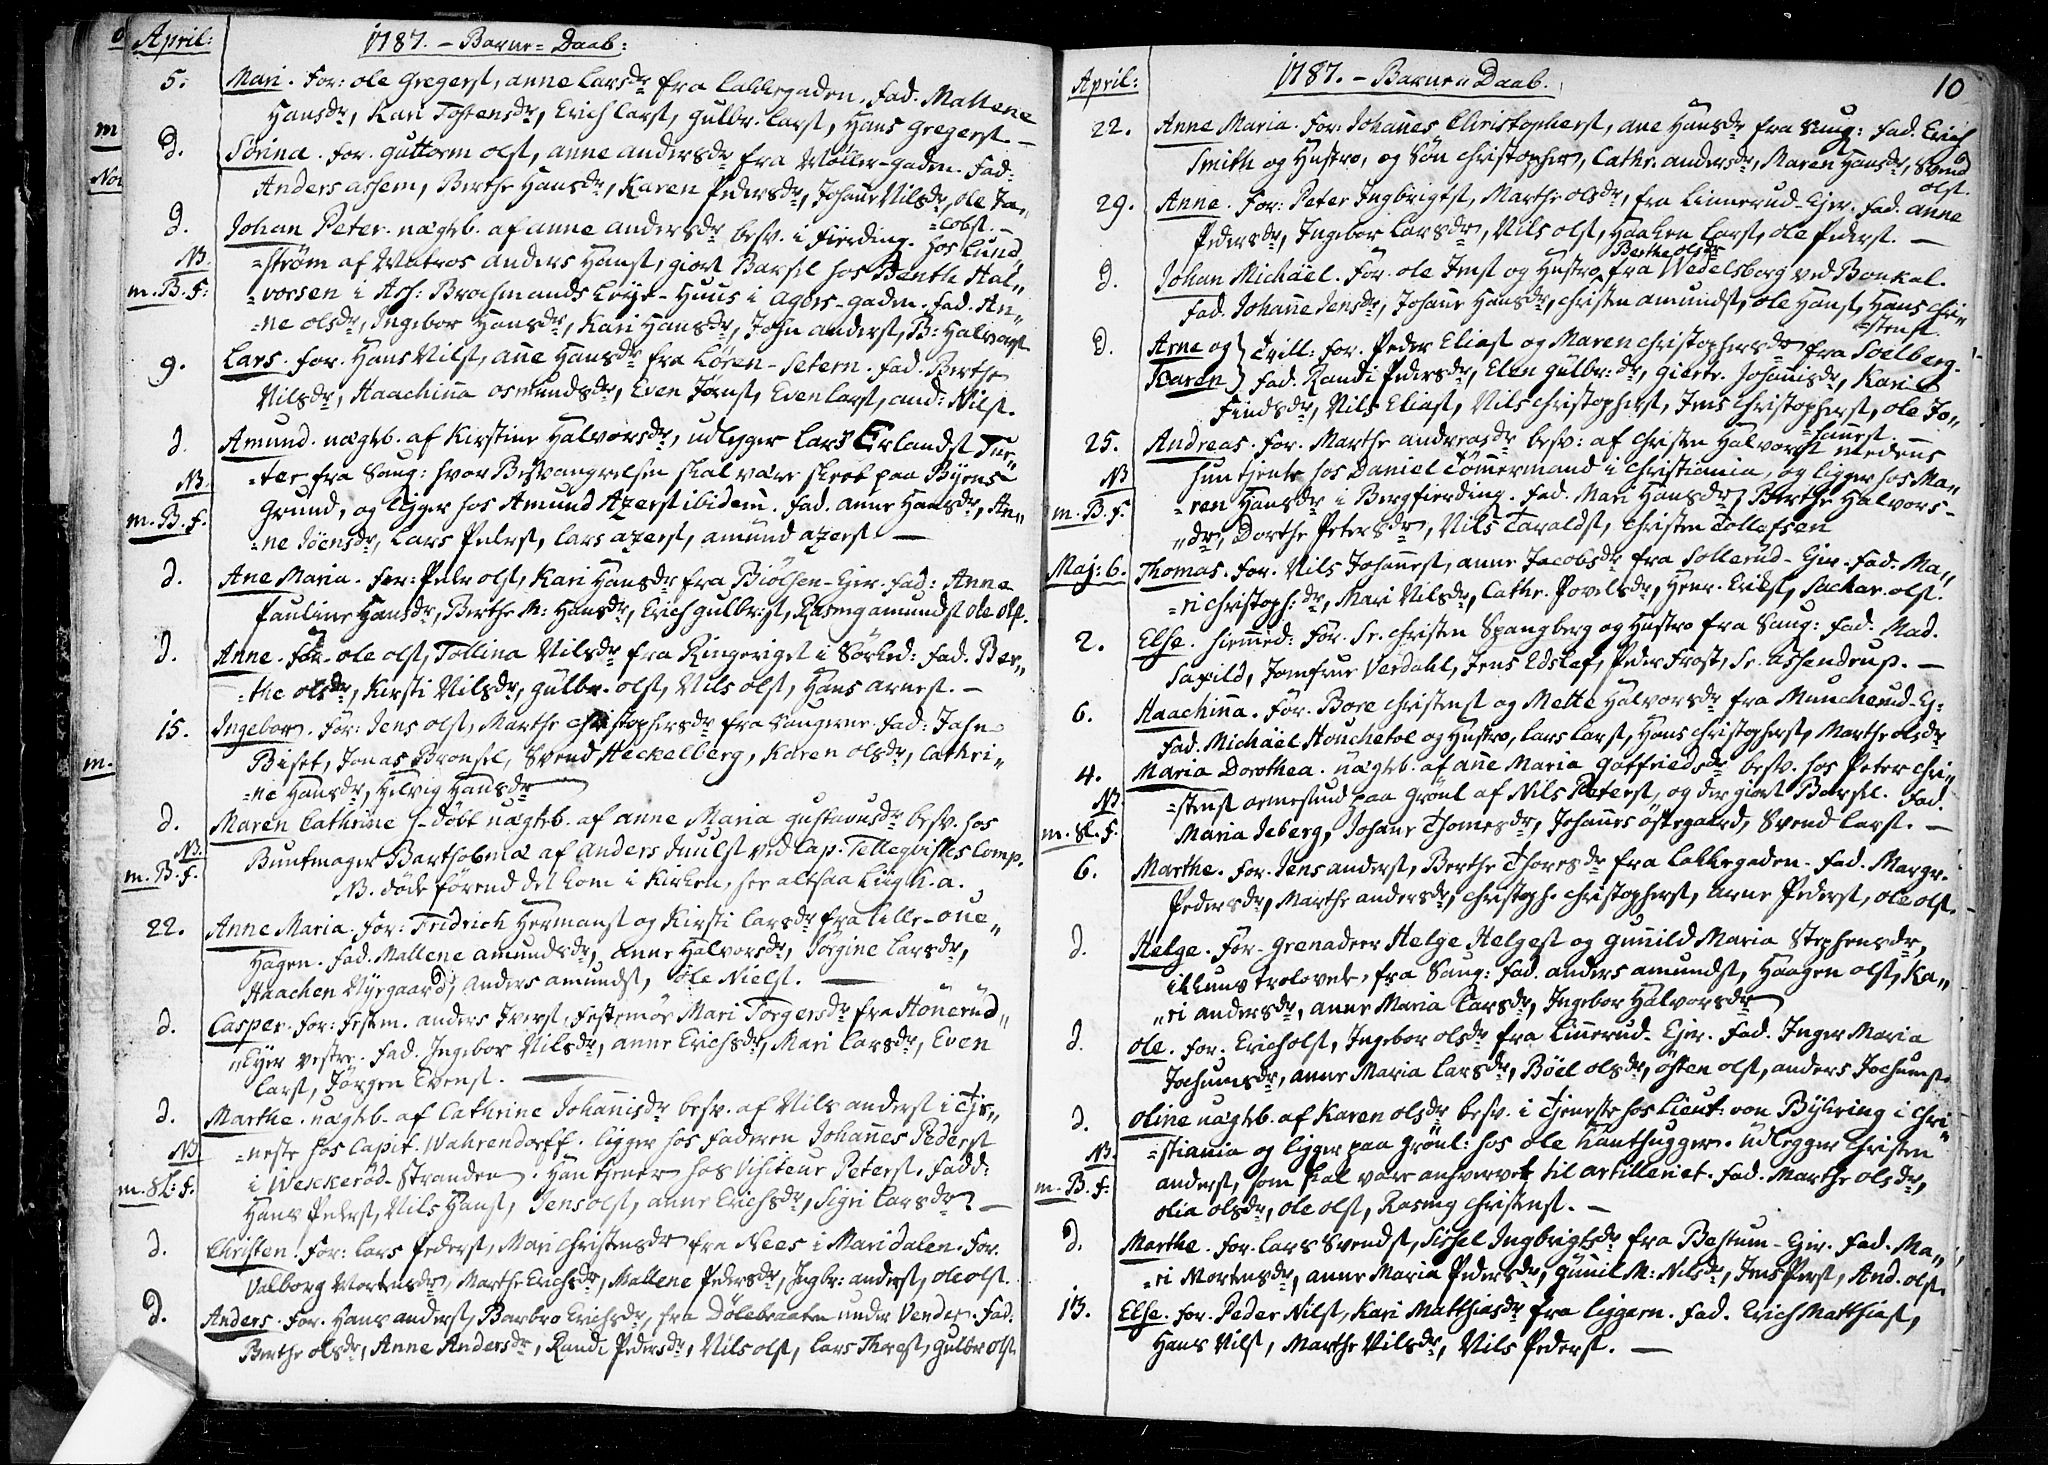 April: 1787. – Barne-Daab:
5. Mari. For: Ole Gregerst, Anne Larsdr fra Lakkegaden. Fad. Mallene
Hansdr, Kari Tostensdr, Erich Larst, Gulbr. Larst, Hans Gregerst –
D. Sörina. For. Guttorm Olst, Anne Andersdr fra Möller-gaden. Fad:
Anders Ashem, Berthe Hansdr, Karen Pedersdr, Johane Nilsdr, Ole Ja„
=cobst. –
D. Johan Peter. uægteb. af Anne Andersdr besv. i Fierding. hos Lund„
NB. =ström af Matros Anders Hanst, giort Barsel hos Benth Hal„
m. B. F: =vorsen i Ass: Brochmands Leye-Huus i Agers-gaden. Fad. An„
=ne Olsdr, Ingebor Hansdr, Kari Hansdr, John Anderst, B: Halvorst
9. Lars. For. Hans Nilst, Ane Hansdr fra Lören-Setern. Fad. Berthe
Nilsdr, Haachina Osmundsdr, Even Jörnst, Even Larst, And: Nilst.
d. Amund. uægteb. af Kirstine Halvorsdr, udlegger Lars Erlandst Tue„
NB. =ter fra Saug: hvor Besvangrelsen skal være skeet paa Byens
m. B. F. Grund, og ligger hos Amund Azerst ibidem. Fad. Anne Hansdr, An„
=ne Jöensdr, Lars Pederst, Lars Azerst, Amund Azerst –
d. Ane Maria. For: Peder Olst, Kari Hansdr fra Biölsen-Ejer. Fad: Anne
Pauline Hansdr, Berthe M: Hansdr, Erich Gulbr:st, Rasmg Amundst Ole Olst.
d. Anne. For. Ole Olst, Tollina Nilsdr fra Ringeriget i Sörked: Fad. Ber„
=the Olsdr, Kirsti Nilsdr, Gulbr. Olst, Nils Olst, Hans Arnest. –
15. Ingebor. For: Jens Olst, Marthe Christophersdr fra Saugerne. Fad: John
Biset, Jonas Bronsel, Svend Heckelberg, Karen Olsdr, Cathri„
=ne Hansdr, Helvig Hansdr
d. Maren Cathrine h-döbt uægteb. af Anne Maria Gustavusdr besv. hos
NB. Buntmager Bartholomæ af Anders Juulst ved Cap. Tellequistes Comp.
m. B. F. NB. döde förend det kom i Kirken, see altsaa Liig K. a.
22. Anne Maria. For: Fridrich Hermanst og Kirsti Larsdr fra Lille-Oue„
Hagen. Fad. Mallene Amundsdr, Anne Halvorsdr, Jörgine Larsdr,
Haachen Nyegaard, Anders Amundst, Ole Nielst. –
d. Casper. For: Festem. Anders Iverst, Festemöe Mari Torgersdr fra Hönerud„
„Ejer vestre. Fad. Ingebor Nilsdr, Anne Erichsdr, Mari Larsdr, Even
Larst, Jörgen Evenst. –
d. Marthe. uægteb. af Cathrine Johanisdr besv. af Nils Anderst i Tje„
NB =neste hos Capit. Wahrendorff. ligger hos Faderen Johanes Pederst
m. Sk: F. i Weckeröd-Stranden. Han tjener hos Visiteur Peterst. Fadd:
Hans Pederst, Nils Hanst, Jens Olst, Anne Erichsdr, Sigri Larsdr –
d. Christen. For: Lars Pederst, Mari Christensdr fra Nees i Maridalen. For.
Valborg Mortensdr, Marthe Erichsdr, Mallene Pedersdr, Ingbr: Anderst, Ole Olst.
D. Anders. For. Hans Anderst, Barbro Erichsdr, fra Dölebraaten under Vendes. Fad.
Berthe Olsdr, Anne Andersdr, Randi Pedersdr, Nils Olst, Lars Thorest, Gulbr Olst
April: 1787. – Barne-Daab. 10
22. Anne Maria. For: Johanes Christopherst, Ane Hansdr fra Saug: Fad. Erich
Smith og Hustro, og Sön Christopher, Cathr. Andersdr, Maren Hansdr, Svend
Olst.
29. Anne. For: Peter Ingbrigtst, Marthe Olsdr, fra Linnerud-Ejer. Fad. Anne
Pedersdr, Ingebor Larsdr, Nils Olst, Haaken Larst, Ole Pederst. –
Berthe Olsdr
d. Johan Michäel. For. Ole Jenst og Hustro fra Wedelsborg ved Bonkal.
Fad. Johane Jensdr, Johane Hansdr, Christen Amundst, Ole Hanst, Hans Chri„
=stenst.
d. Arne og } Tvill: For. Peder Eliast og Maren Christophersdr fra Soelberg.
Karen } Fad. Randi Pedersdr, Elen Gulbr:dr, Giertr. Johanisdr, Kari
Findsdr, Nils Eliast, Nils Christopherst, Jens Christopherst, Ole Jo„
=hanest.
25. Andreas. For. Marthe Andreasdr besv: af Christen Halvorst medens
NB hun tjente hos Daniel Tömmermand i Christiania, og ligger hos Ma„
m. B. F. =ren Hansdr i Bergfierding. Fad. Mari Hansdr, Berthe Halvors-
„dr, Dorthe Petersdr, Nils Taraldst, Christen Tollefsen
Maj: 6. Thomas. For. Nils Johanest, Anne Jacobsdr fra Sollerud-Ejer. Fad. Ma„
=ri Christoph:dr, Mari Nilsdr, Cathr. Povelsdr, Henr. Erikst, Sachar. Olst.
2. Else. hiemmed: For. Sr. Christen Spangberg og Hustro fra Saug: Fad. Mad.
Saxild, Jomfrue Verdahl, Jens Edslef, Peder Frost, Sr. Assendrup. –
6. Haachina. For. Bore Christenst og Mette Halvorsdr fra Muncherud-Ej:
Fad. Michäel Houchetol og Hustro, Lars Larst, Hans Christopherst, Marthe Olsdr
4. Maria Dorothea. uægteb. af Ane Maria Gotfriedsdr besv. hos Peter Chri„
NB. =stenst Ormesund paa Grönl af Nils Peterst, og der giort Barsel. Fad.
m. Sk. F. Maria Jeberg, Johane Thomesdr, Johanes Östegaard, Svend Larst. –
6. Marthe. For. Jens Anderst, Berthe Thoresdr fra Lakkegaden. Fad. Margr.
Pedersdr, Marthe Andersdr, Christoph. Christopherst, Arne Pederst, Ole Olst. –
d. Helge. For. Grenadeer Helge Helgest og Gunild Maria Stephensdr,
ikkuns trolovede, fra Saug: Fad. Anders Amundst, Haagen Olst, Ka„
„ri Andersdr, Anne Maria Larsdr, Ingebor Halvorsdr
d. Ole. For. Erich Olst, Ingebor Olsdr fra Linnerud-Ejer. Fad. Inger Maria
Jochumsdr, Anne Maria Larsdr, Böel Olsdr, Östen Olst, Anders Jochumst.
d. Oline uægteb. af Karen Olsdr besv. i Tjeneste hos Lieut. von Bÿhring i Chri„
NB. =stiania og ligger paa Grönl: hos Ole Kanthugger. Udlegger Christen
m. B. F: Anderst, som skal være anhvervet til Artilleriet. Fad. Marthe Olsdr,
Olia Olsdr, Ole Olst, Rasmg Christenst. –
d. Marthe. For. Lars Svendst, Sissel Ingbrigtsdr fra Bestum-Ejer. Fad. Ma„
=ri Mortensdr, Anne Maria Pedersdr, Gunil M: Nilsdr, Jens Perst, And. Olst.
13. Else. For. Peder Nilst, Kari Matthiasdr fra Liggern. Fad. Erich Matthiast,
Hans Nilst, Marthe Nilsdr, Nils Pederst. –